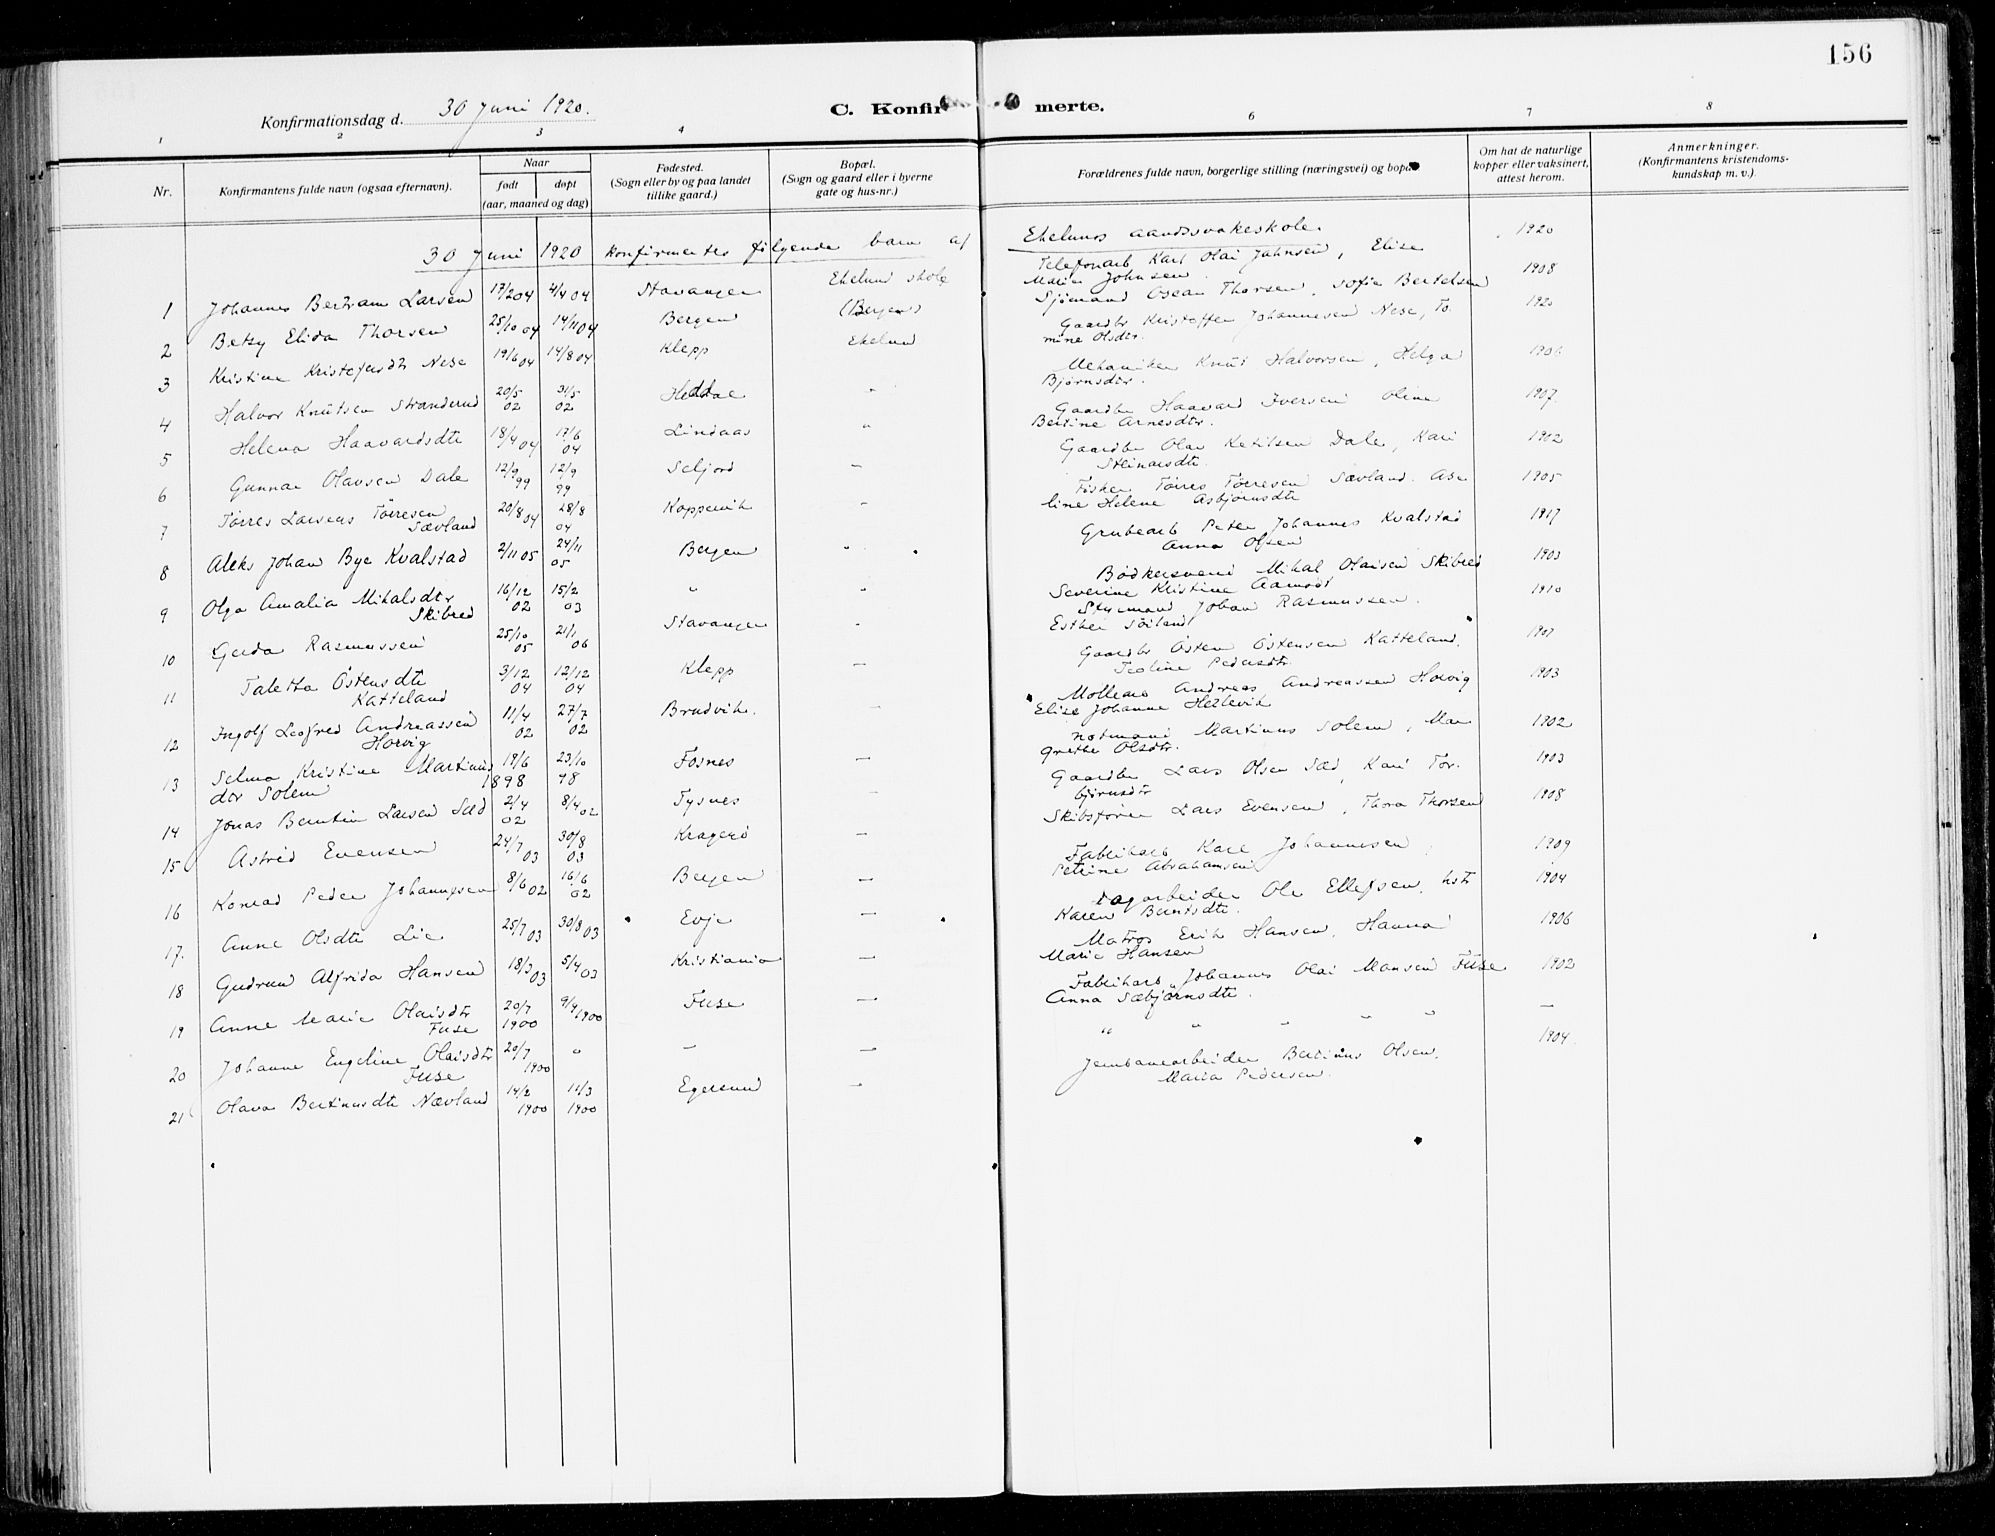 156
Konfirmationsdag d. 30 Juni 1920.
C. Konfir merte.
1 2 3 4 6 7 8
Nr.
Konfirmantens fulde navn (ogsaa efternavn).
Naar
født døpt
(aar, maaned og dag)
Fødested.
(Sogn eller by og paa landet
tillike gaard.)
Bopæl.
(Sogn og gaard eller i byerne
gate og hus-nr.)
Forældrenes fulde navn, borgerlige stilling (næringsvei) og bopæ
Om hat de naturlige
kopper eller vaksinert,
attest herom.
Anmerkninger.
(Konfirmantens kristendoms-
kundskap m. v.).
30 Juni 1920 konfirmertes følgende barn af Ekelunds aandssvakeskole.
1 Johannes Bertram Larsen 17/2 04 4/4 04 Stavanger Ekelund skole (Bergen) Telefonarb Karl Olai Johnsen, Elise
Marie Johnsen. 1920
2 Betzy Elida Thorsen 25/10 04 14/11 04 Bergen Ekelund Sjømand Oscar Thorsen, Sofie Bertelsen 1908
3 Kristine Kristofersdtr Nese 19/6 04 14/8 04 Klepp Gaardbr Kristoffer Johannesen Nese, To
mine Olsdtr. 1920
4 Halvor Knutsen Stranderud 20/5 02 31/5 02 Heddal " Mekaniker Knut Halvorsen, Helga
Bjørnsdtr. 1906
5 Helena Haavardsdtr 18/4 04 17/6 04 Lindaas " Gaardbr Haavard Iversen Oline
Bertine Arnesdtr. 1907
6 Gunnar Olavsen Dale 12/9 99 12/9 99 Seljord — Gaardbr Olav Ketilsen Dale, Kari
Steinarsdtr. 1902
7 Tørres Larseus Tørresen
Sævland 20/8 04 28/8 04 Koppervik — Fisker Tørres Tørresen Sævland. Ase
line Helene Asbjørnsdtr 1905
8 Aleks Johan Bye Kvalstad 2/11 05 24/11 05 Bergen " Grubearb Peter Johannes Kvalstad
Anna Olsen 1917
9 Olga Amalia Mihalsdtr
Skibred 16/12 02 15/2 03 " " Bødkersvend Mihal Olaisen Skibred
Severine Kristine Aamodt 1903
10 Gerda Rasmussen 25/10 05 21/1 06 Stavanger " Styrmand Johan Rasmussen.
Esther Söiland 1910
11 Taletta Östensdtr
Katteland 3/12 04 12/12 04 Klepp — Gaardbr Östen Östensen Katteland.
Teoline Pedersdtr. 1907
12 Ingolf Leofred Andreassen
Horvig 11/4 02 27/7 02 Bruvik. — Møllear Andreas Andreassen Horvig
Elise Johanne Hetlevik 1903
13 Selma Kristine Martinus
dtr Solem 19/6 1898 23/10 98 Fosnes — Notmand Martinus Solem, Mar
grethe Olsdtr. 1902
14 Jonas Berntin Larsen Sæd 2/4 02 8/4 02 Tysnes — Gaardbr Lars Olsen Sæd, Kari Tor.
bjørnsdtr 1903
15 Astrid Evensen 24/7 03 30/8 03 Kragerö — Skibsfører Lars Evensen, Thora Thorsen 1908
16 Konrad Peder Johannesen 8/6 02 16/6 02 Bergen — Fabrikarb Karl Johannesen,
Petrine Abrahamsen 1909
17. Anne Olsdtr Lie 25/7 03 30/8 03 Evje — Dagarbeider Ole Ellefsen, hstr
Karen Berntsdtr. 1904
18 Gudrun Alfrida Hansen 18/3 03 5/4 03 Kristiania — Matros Erik Hansen, Hanna
Marie Hansen 1906
19 Anne Marie Olaisdtr
Fuse 20/7 1900 9/9 1900 Fuse — Fabrikarb Johannes Olai Monsen Fuse
Anna Sæbjørnsdtr. 1902
20 Johanne Engeline Olaisdtr
Fuse 20/7 1900 " — — " " " " " —
21 Olava Bertinusdtr Nævland 14/2 1900 11/3 1900 Egersund — Jernbanearbeider Bertinus Olsen,
Maria Pedersen. 1904.